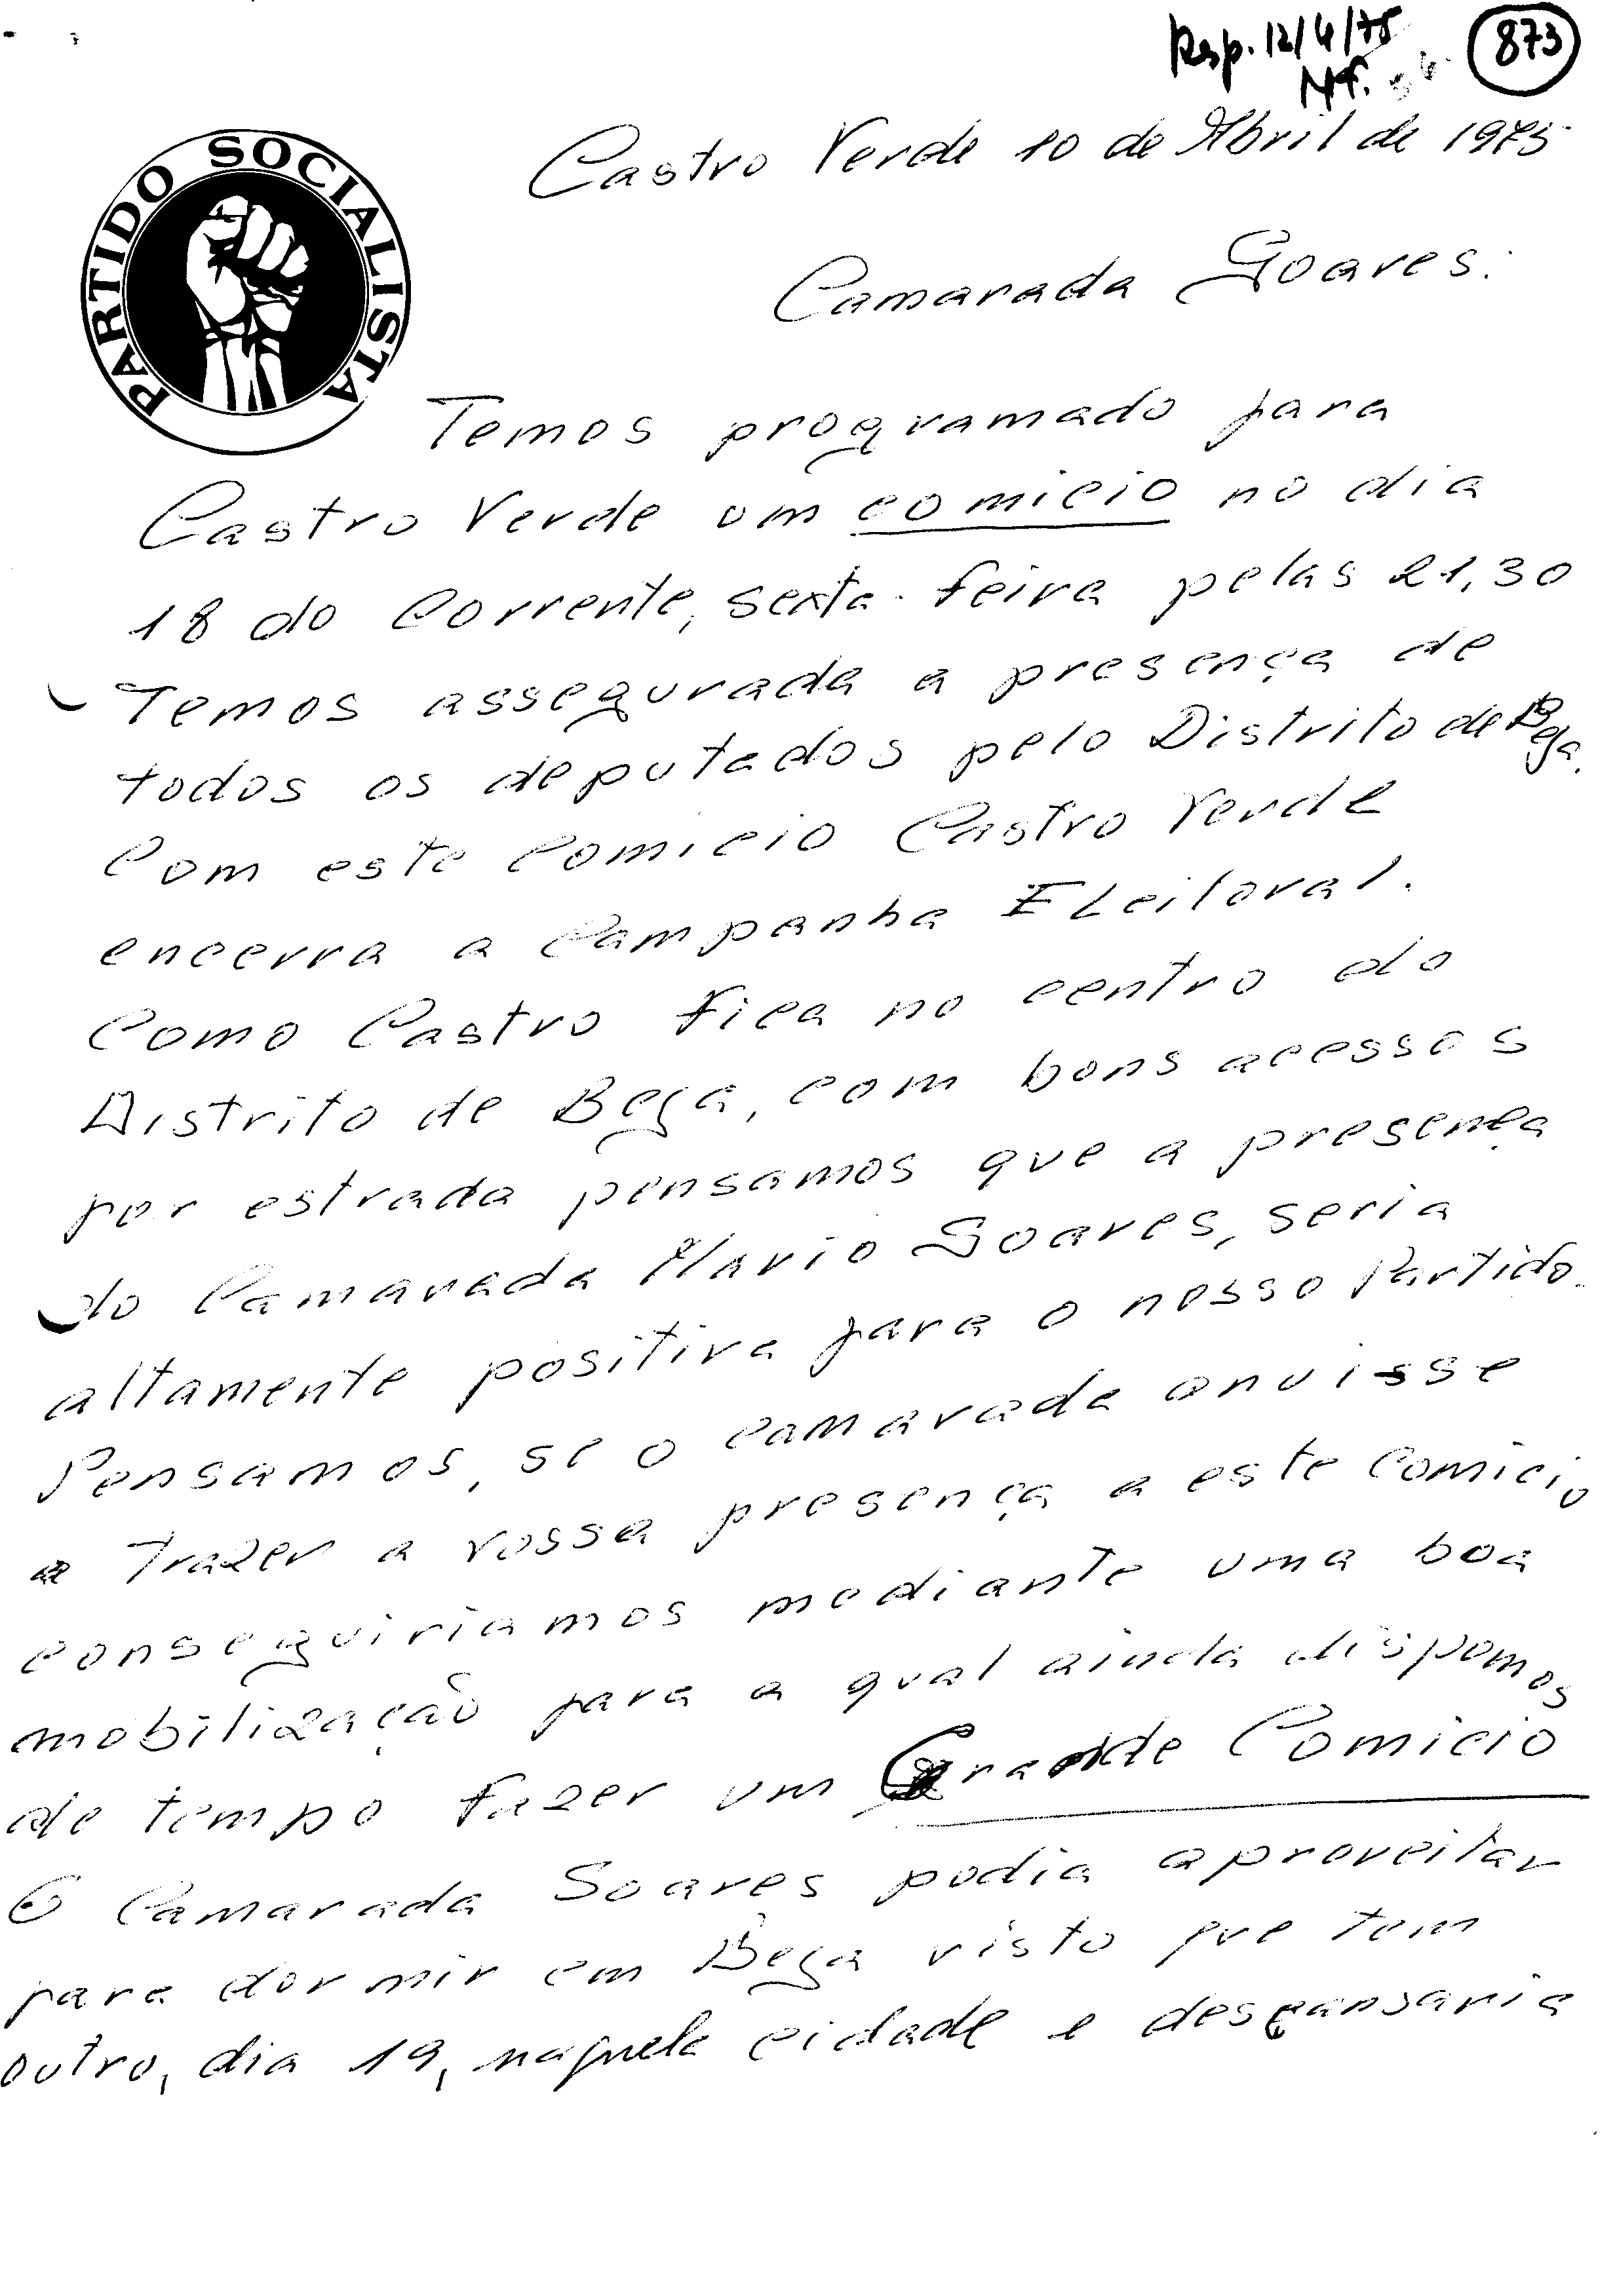 Resp. 12/4/75
873
PARTIDO SOCIALISTA
Castro Verde 10 de Abril de 1975
Camarada Soares:
Temos programado para
Castro Verde um comicio no dia
18 do Corrente, sexta-feira pelas 21,30
Temos assegurada a presença de
todos os deputados pelo Distrito de Beja.
Com este Comicio Castro Verde
encerra a Campanha Eleitoral.
Como Castro fica no centro do
Distrito de Beja, com bons acessos
por estrada pensamos que a presença
do Camarada Mario Soares, seria
altamente positiva para o nosso Partido.
Pensamos, se o camarada anuisse
a trazer a vossa presença a este Comicio
conseguiriamos mediante uma boa
mobilização para a qual ainda dispomos
de tempo fazer um Grande Comicio
O Camarada Soares podia aproveitar
para dormir em Beja visto que tem
outro, dia 19, naquela cidade e descansaria